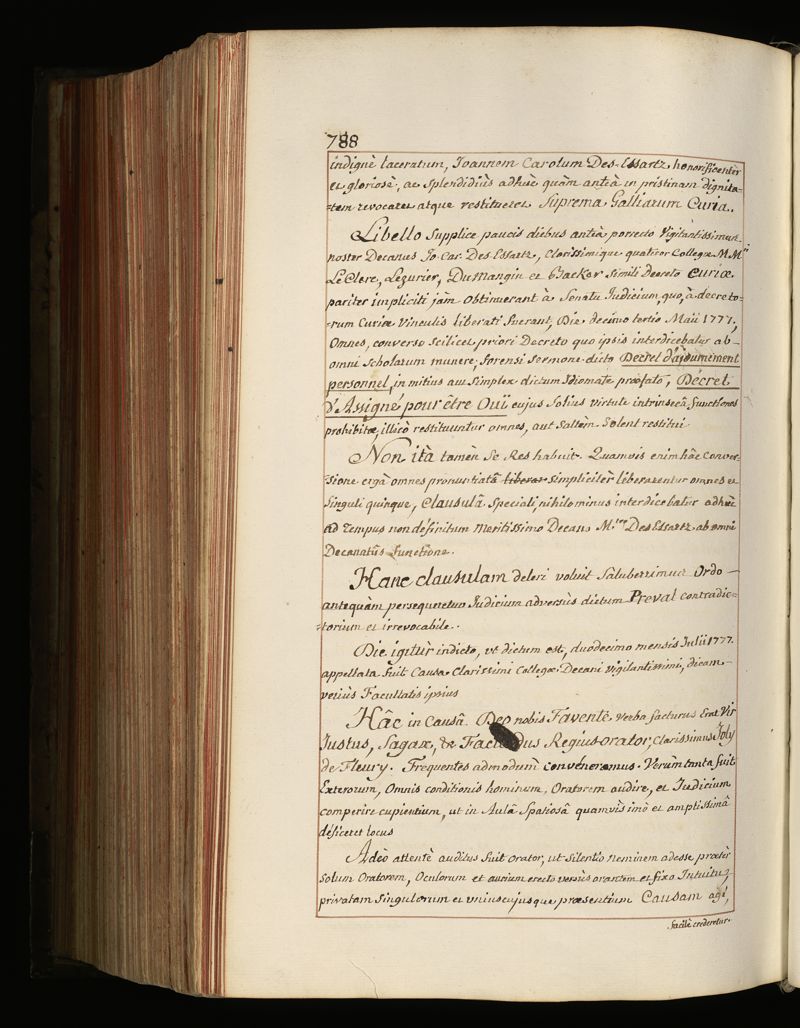 788
indignè laceratum, Joannem Carolum Des-Essartz honorificentèr
et gloriosè, ac splendidiùs adhùc quàm anteà in pristinam dignita-
=tem revocaret atque restitueret Suprema Galliarum Curia.
Libello supplice paucis diebus anteà porrecto Vigilantissimus
noster Decanus Jo. Car. Des-Essartz, Clarissimique quatuor Collegæ M.Mri
Le Clerc, Lezurier, Dumangin et Backer simili decreto Curiæ
pariter impliciti jàm obtinuerant à Senatu Judicium, quo, à decreto-
=rum Curiæ vinculis liberati fuerant, Die decimo tertio Maii 1777,
Omnes, converso scilicet priori Decreto quo ipsis interdicebatur ab-
omni scholarum munere, forensi sermone dicto Décret d'ajournement
personnel, in mitius aut simplex dictum Idiomate præfato, Décret
d'Assigné pour être Oüi cujus solius virtute intrinsecâ functiones
prohibitæ, illicò restituuntur omnes, aut saltèm solent restitui
Non ità tamèn se Res habuit. Quamvis enim hâc conver-
=sione ergà omnes pronuntiatâ liberar simplicitèr liberarentur omnes et
singuli quinque, Clausulâ speciali, nihilominus interdicebatur adhùc
ad tempus non définitum meritissimo Decano M.tro Des Essartz ab omni
Decanatûs functione.
Hanc clausulam deleri voluit Saluberrimus Ordo —
antequàm persequeretur Judicium adversùs dictum Préval contradic=
=torium et irrevocabile.
Die igitùr indicto, ut dictum est, duodecimo mensis Julii 1777.
appellata fuit Causa Clarissimi Collegæ Decani vigilantissimi, dicam
veriùs Facultatis ipsius
Hâc in Causâ Deo nobis Favente verba facturus erat Vir
Justus, Sagax, & Facundus Regius orator, Clarissimus Joly
de Fleury. Frequentes admodùm convéneramus. Verùm tanta fuit
Exterorum, omnis conditionis hominum, Oratorem audire, et Judicium
comperire cupientium, ut in Aulâ spatiosâ quamvis imò et amplissimâ
déficeret locus
Adeò attentè auditus fuit orator, ut silentio neminem adesse prætèr
solum Oratorem, Oculorum et aurium erecto versùs orantem et fixo Intuitu,
privatam singulorum et uniuscujusque præsentium Causam agi,
facilè crederetur.